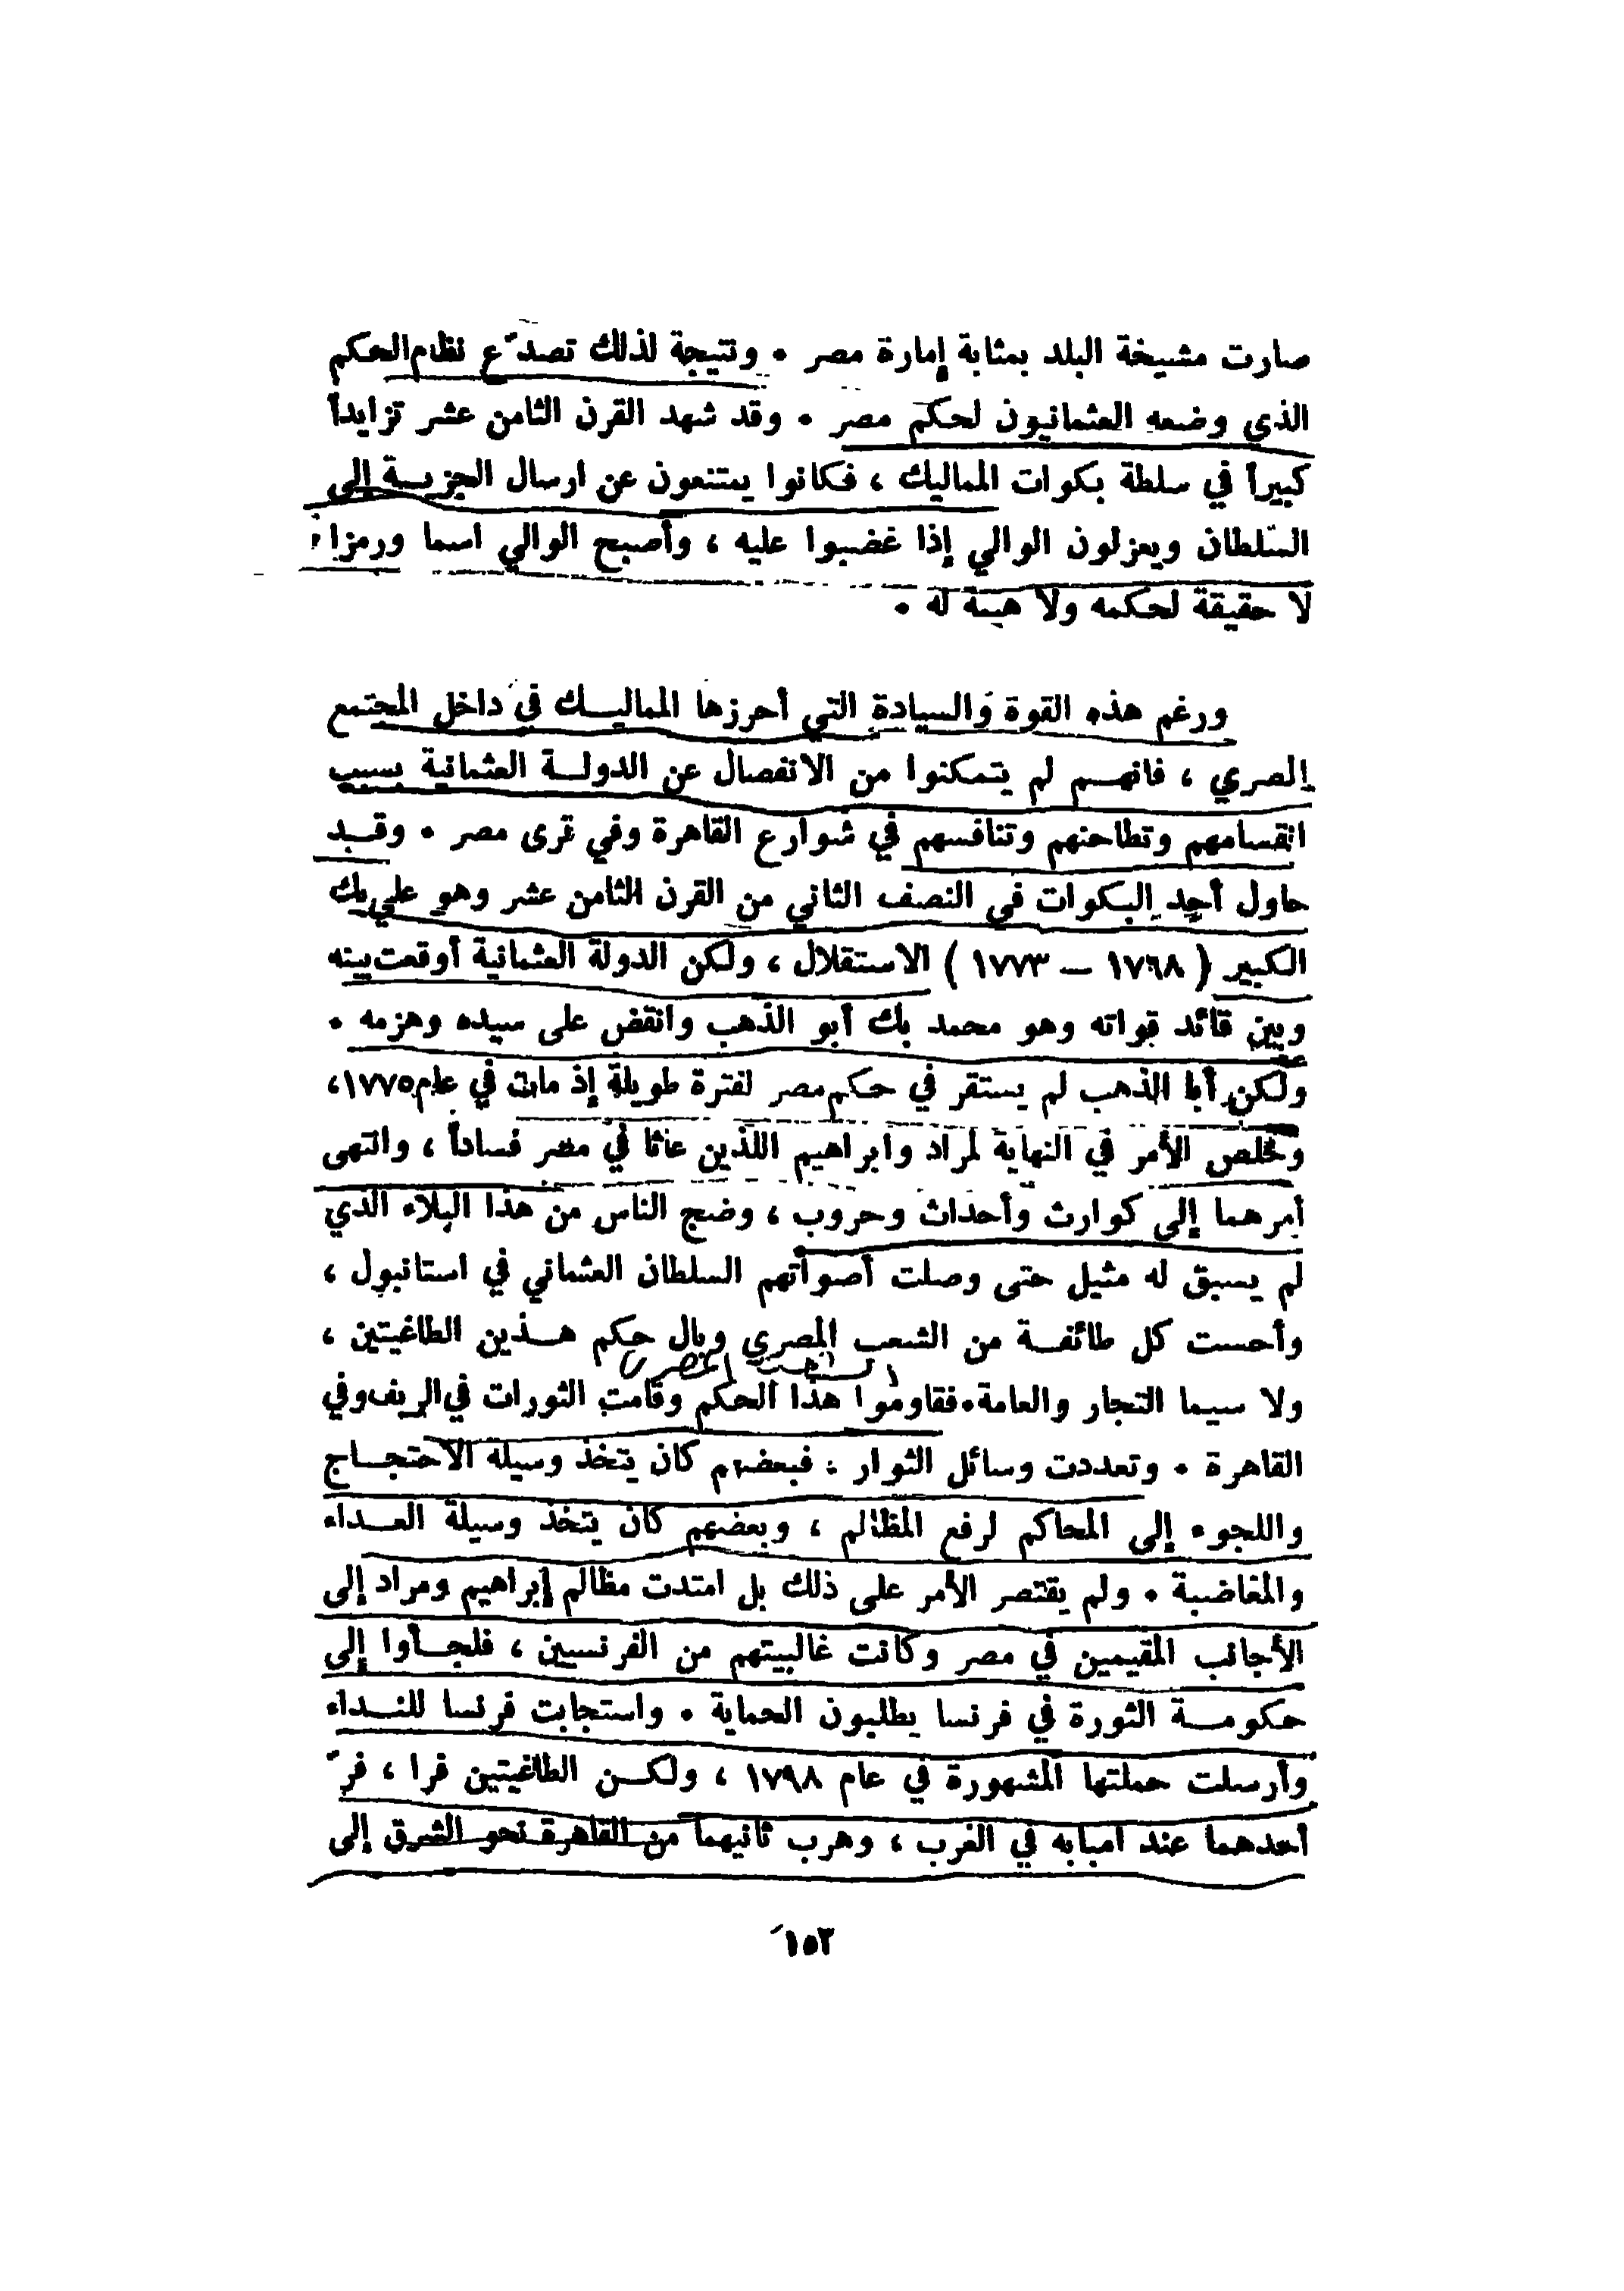 صارت مشيخة البلد بمثابة إمارة مصر ٠ ونتيجة لذلك تصدّع نظام الحكم
الذي وضعه العثمانيون لحكم مصر ٠ وقد شهد القرن الثامن عشر تزايداً
كبيراً في سلطة بكوات المماليك ، فكانوا يمتنعون عن ارسال الجزيــة إلى
السلطان ويعزلون الوالي إذا غضبوا عليه ، وأصبح الوالي اسما ورمزا
لا حقيقة لحكمه ولا هيبة له ٠
ورغم هذه القوة والسيادة التي أحرزها المماليــك في داخل المجتمع
المصري ، فانهــم لم يتمكنوا من الانفصال عن الدولــة العثمانية بسبب
انقسامهم وتطاحنهم وتنافسهم في شوارع القاهرة وفي قرى مصر ٠ وقــد
حاول أحد البكوات في النصف الثاني من القرن الثامن عشر وهو علي بك
الكبير ( ١٧٦٨ — ١٧٧٣ ) الاستقلال ، ولكن الدولة العثمانية أوقعت بينه
وبين قائد قواته وهو محمد بك أبو الذهب وانقض على سيده وهزمه ٠
ولكن أبا الذهب لم يستقر في حكم مصر لفترة طويلة إذ مات في عام ١٧٧٥،
وخلص الأمر في النهاية لمراد وابراهيم اللذين عاثا في مصر فساداً ، وانتهى
أمرهما إلى كوارث وأحداث وحروب ، وضج الناس من هذا البلاء الذي
لم يسبق له مثيل حتى وصلت أصواتهم السلطان العثماني في استانبول ،
وأحست كل طائفــة من الشعب المصري وبال حكم هــذين الطاغيتين ،
الشعب المصري
ولا سيما التجار والعامة٠فقاوموا هذا الحكم وقامت الثورات في الريف وفي
القاهرة ٠ وتعددت وسائل الثوار : فبعضهم كان يتخذ وسيلة الاحتجــاج
واللجوء إلى المحاكم لرفع المظالم ، وبعضهم كان يتخذ وسيلة العــداء
والمغاضبة ٠ ولم يقتصر الأمر على ذلك بل امتدت مظالم إبراهيم ومراد إلى
الأجانب المقيمين في مصر وكانت غالبيتهم من الفرنسيين ، فلجــأوا إلى
حكومــة الثورة في فرنسا يطلبون الحماية ٠ واستجابت فرنسا للنــداء
وأرسلت حملتها المشهورة في عام ١٧٩٨ ، ولكــن الطاغيتين فرا ، فرّ
أحدهما عند امبابه في الغرب ، وهرب ثانيهما من القاهرة نحو الشرق إلى
١٥٣